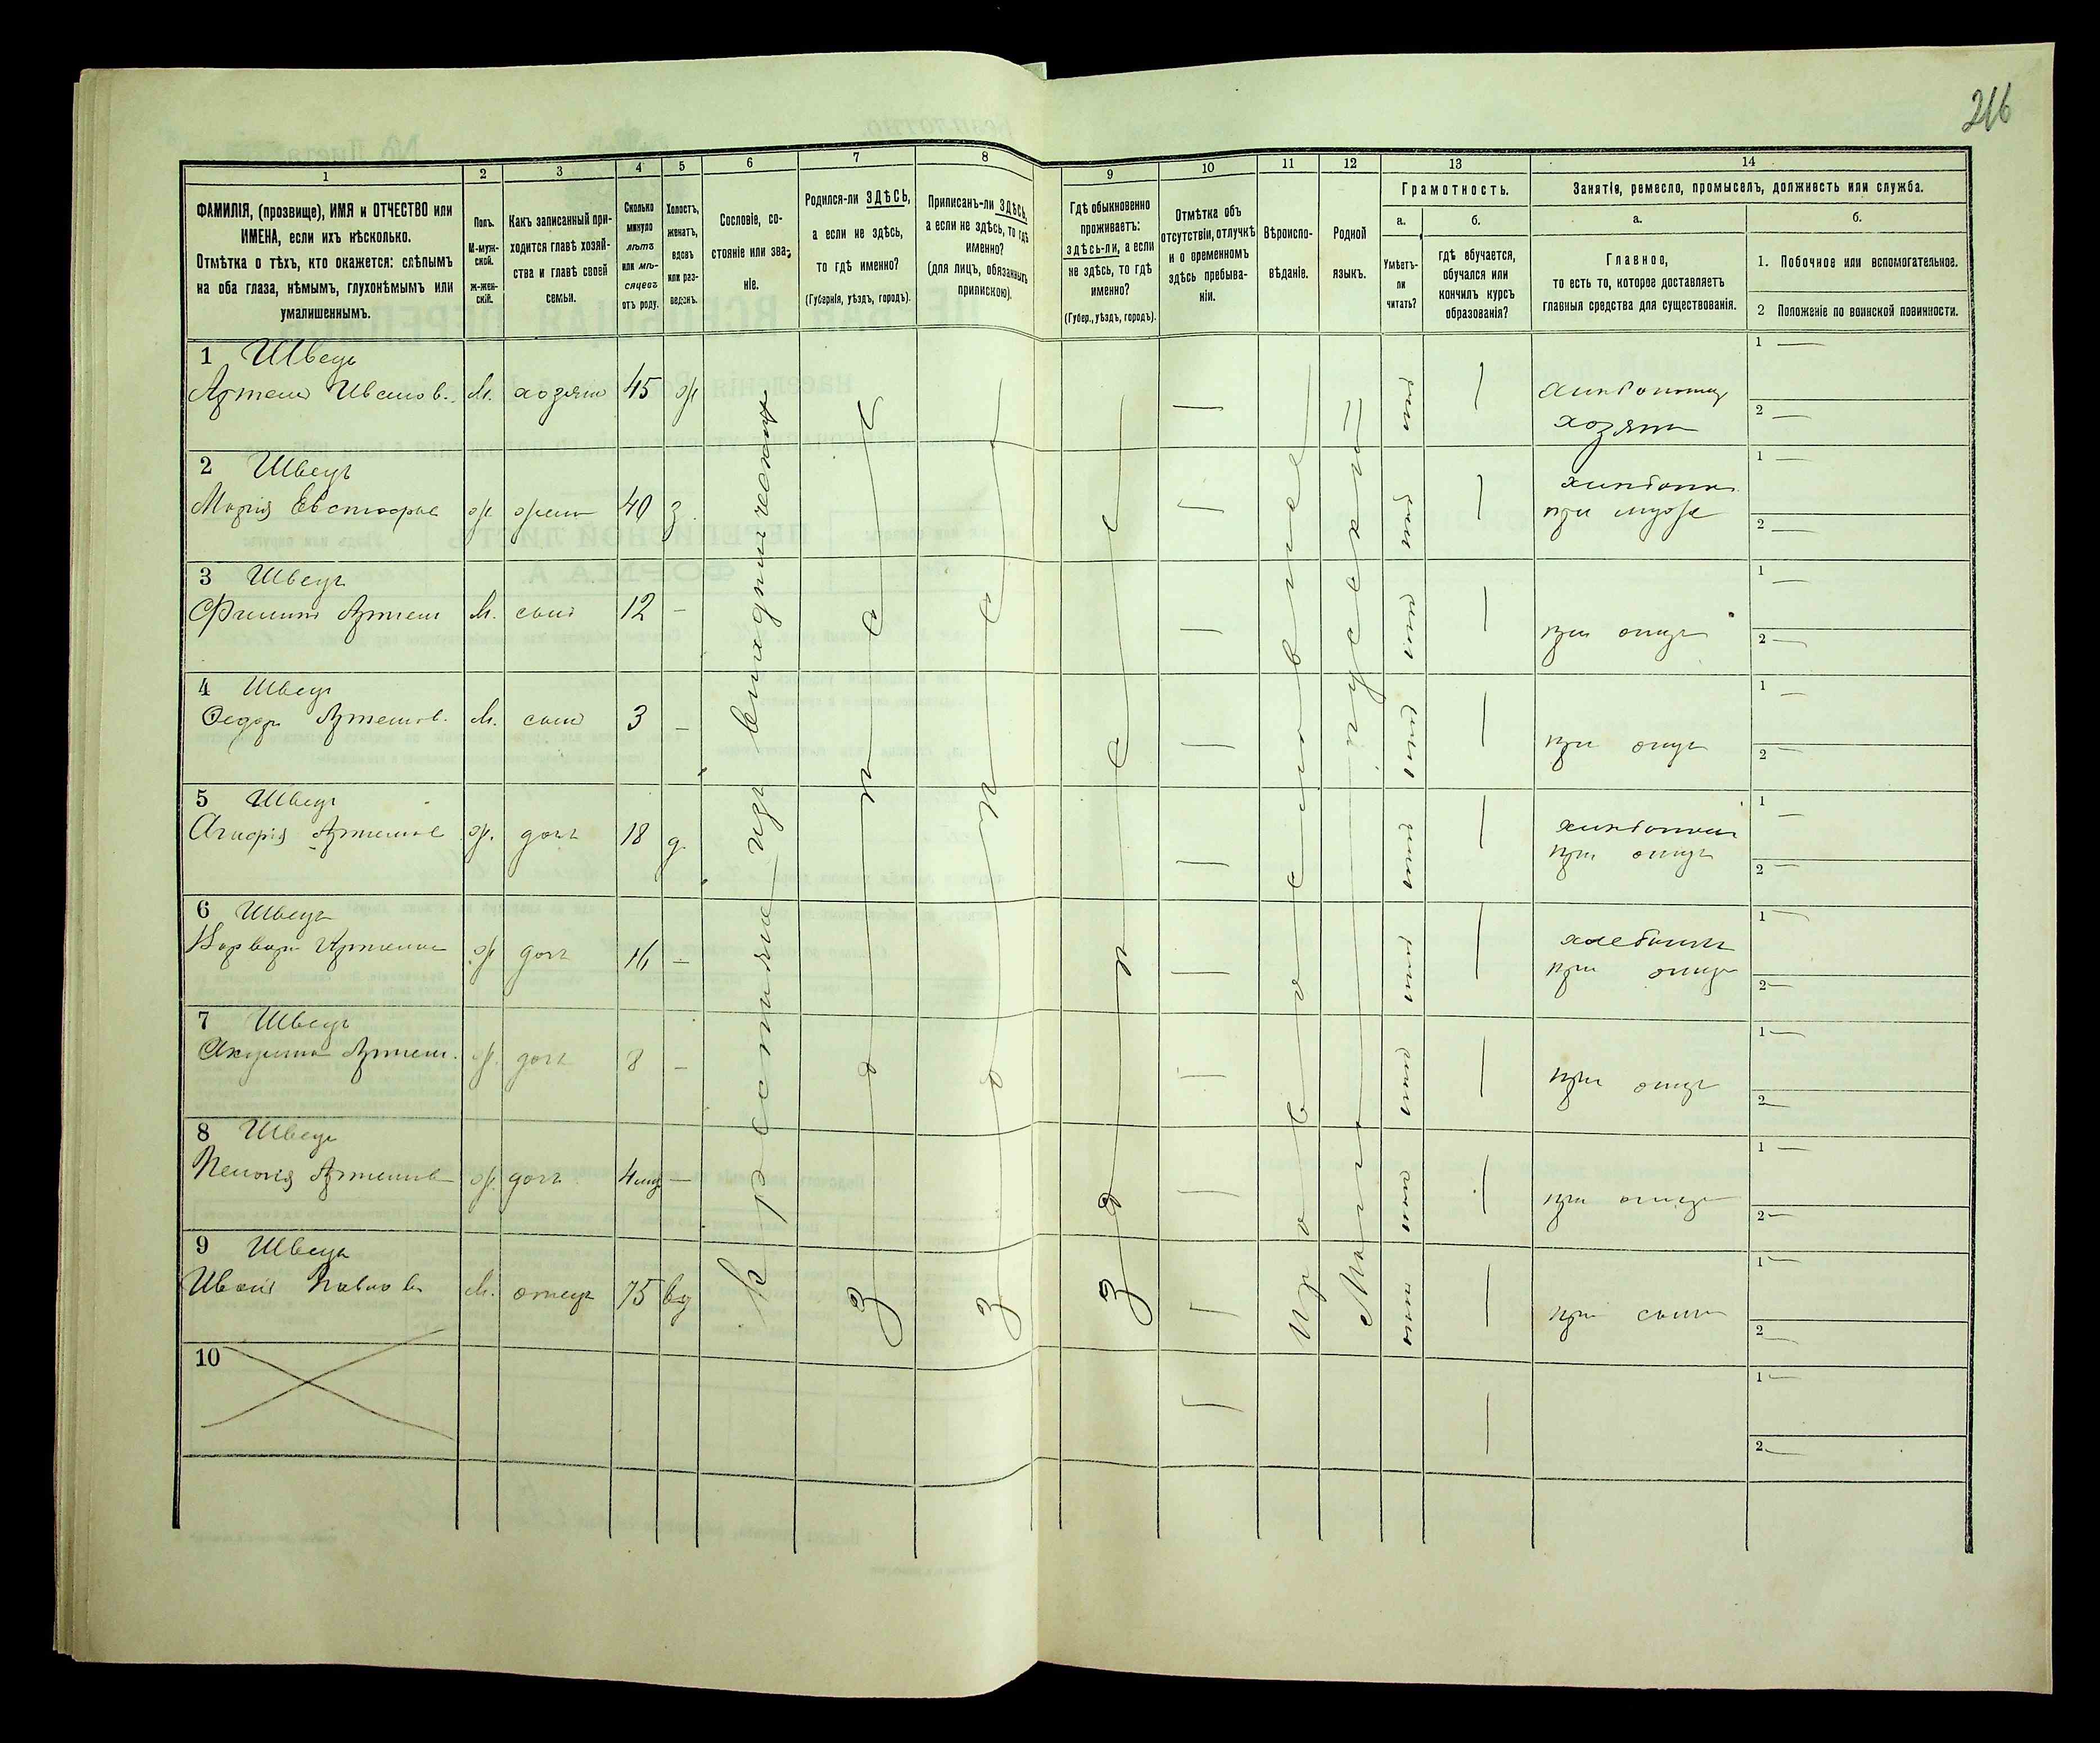 216
1 2 3 4 5 6 7 8 9 10 11 12 13 14
ФАМИЛІЯ, (прозвище), ИМЯ и ОТЧЕСТВО или
ИМЕНА, если ихъ нѣсколько.
Отмѣтка о тѣхъ, кто окажется: слѣпымъ
на оба глаза, нѣмымъ, глухонѣмымъ или
умалишеннымъ.
Полъ.
М-муж-
ской.
ж-жен-
скій.
Какъ записанный при-
ходится главѣ хозяй-
ства и главѣ своей
семьи.
Сколько
минуло
лѣтъ
или мѣ-
сяцевъ
отъ роду.
Холостъ,
женатъ,
вдовъ
или раз-
веденъ.
Сословіе, со-
стояніе или зва-
ніе.
Родился-ли ЗДѢСЬ,
а если не здѣсь,
то гдѣ именно?
(Губернія, уѣздъ, городъ).
Приписанъ-ли ЗДѢСЬ,
а если не здѣсь, то гдѣ
именно?
(для лицъ, обязанныхъ
припискою).
Гдѣ обыкновенно
проживаетъ:
здѣсь-ли, а если
не здѣсь, то гдѣ
именно?
(Губер., уѣздъ, городъ).
Отмѣтка объ
отсутствіи, отлучкѣ
и о временномъ
здѣсь пребыва-
ніи.
Вѣроиспо-
вѣданіе.
Родной
языкъ.
Грамотность.
а.
Умѣетъ-
ли
читать?
б.
гдѣ обучается,
обучался или
кончилъ курсъ
образованія?
Занятіе, ремесло, промыселъ, должность или служба.
а.
Главное,
то есть то, которое доставляетъ
главныя средства для существованія.
б.
1. Побочное или вспомогательное.
2 Положеніе по воинской повинности.
крестьяне изъ
здѣсь
здѣсь
здѣсь
Православное
Мало русский
1 Швець
Артемъ Иванов. М. хозяин 45 ж
нѣтъ
хозяин
1
2
2 Швецъ
Мария ж жена 40 з.
нѣтъ
при мужѣ
1
2
3 Швецъ
Филипъ Артем М. сынъ 12 -
нѣтъ
при отцѣ
1
2
4 Швецъ
Федоръ Артемов. М. сынъ 3 -
нѣтъ
при отцѣ
1
2
5 Швецъ
Артемов ж. дочь 18 д
нѣтъ
при отцѣ
1
2
6 Швецъ
Варвара Артемов ж дочь 16 -
нѣтъ
при отцѣ
1
2
7 Швецъ
Акулина Артем. ж. дочь 8 -
нѣтъ
при отцѣ
1
2
8 Швець
Артемов ж. дочь 4 мц -
нѣтъ
при отцѣ
1
2
9 Швець
Иванъ Павлов М. отець 75 вд
нѣтъ
при сынѣ
1
2
10
1
2